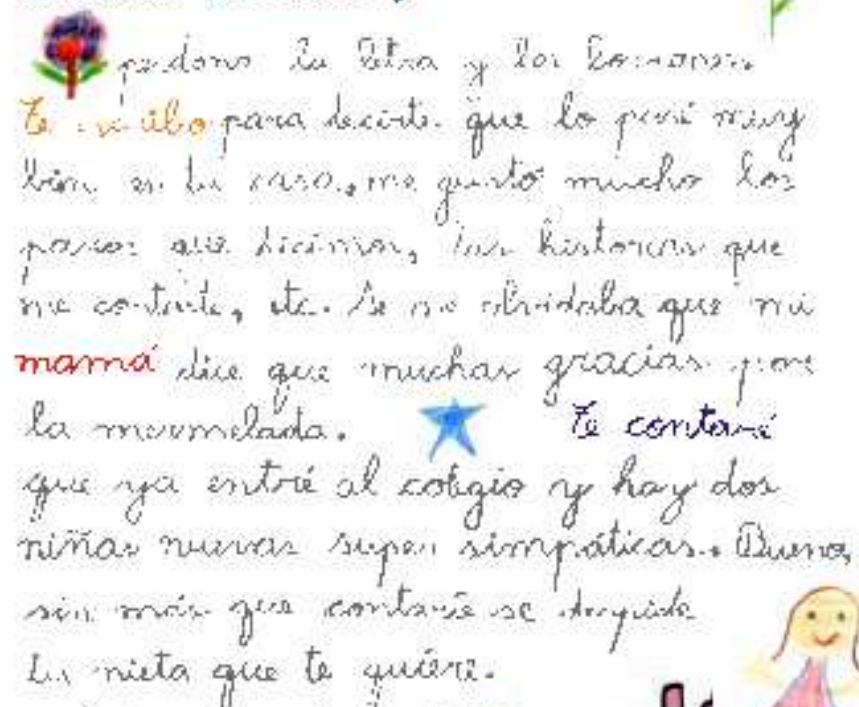 perdona la letra y los borrones.
Te escribo para decirte que lo pasé muy
bien en tu casa, me gustó mucho los
paseos que hicimos, las historias que
me contaste, etc. Se me olvidaba que mi
mamá dice que muchas gracias por
la mermelada. Te contaré
que ya entré al colegio y hay dos
niñas nuevas super simpáticas. Bueno,
sin más que contarte se despide
tu nieta que te quiere.